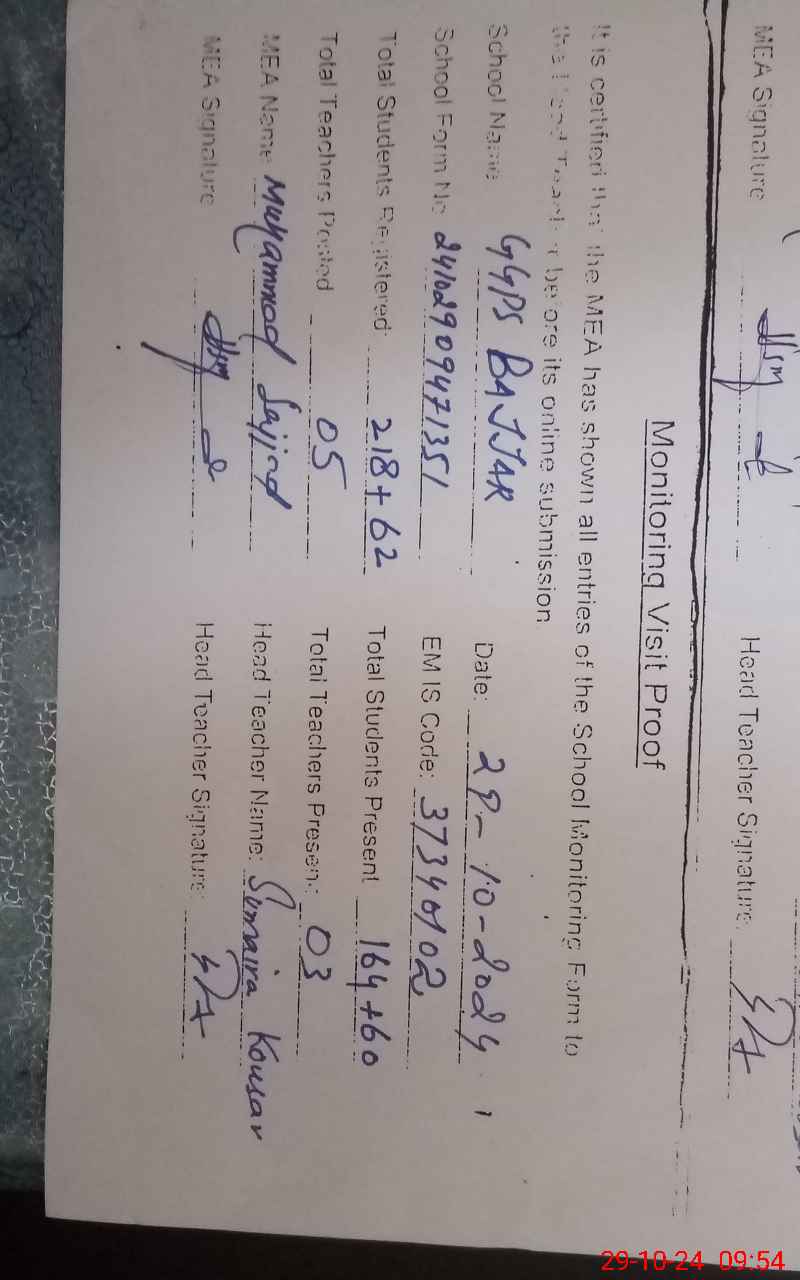 MEA Signature Head Teacher Signature:
Monitoring Visit Proof
It is certified that the MEA has shown all entries of the School Monitoring Form to
the Head Teacher before its online submission.
School Name GGPS BAJJAR Date: 29-10-2024
School Form No 24102909471351 EMIS Code: 37340102
Total Students Registered: 218+62 Total Students Present 164+60
Total Teachers Posted 05 Total Teachers Present: 03
MEA Name Muhammad Sajjad Head Teacher Name: Sumaira Kousar
MEA Signature Head Teacher Signature:
29-10-24 09:54